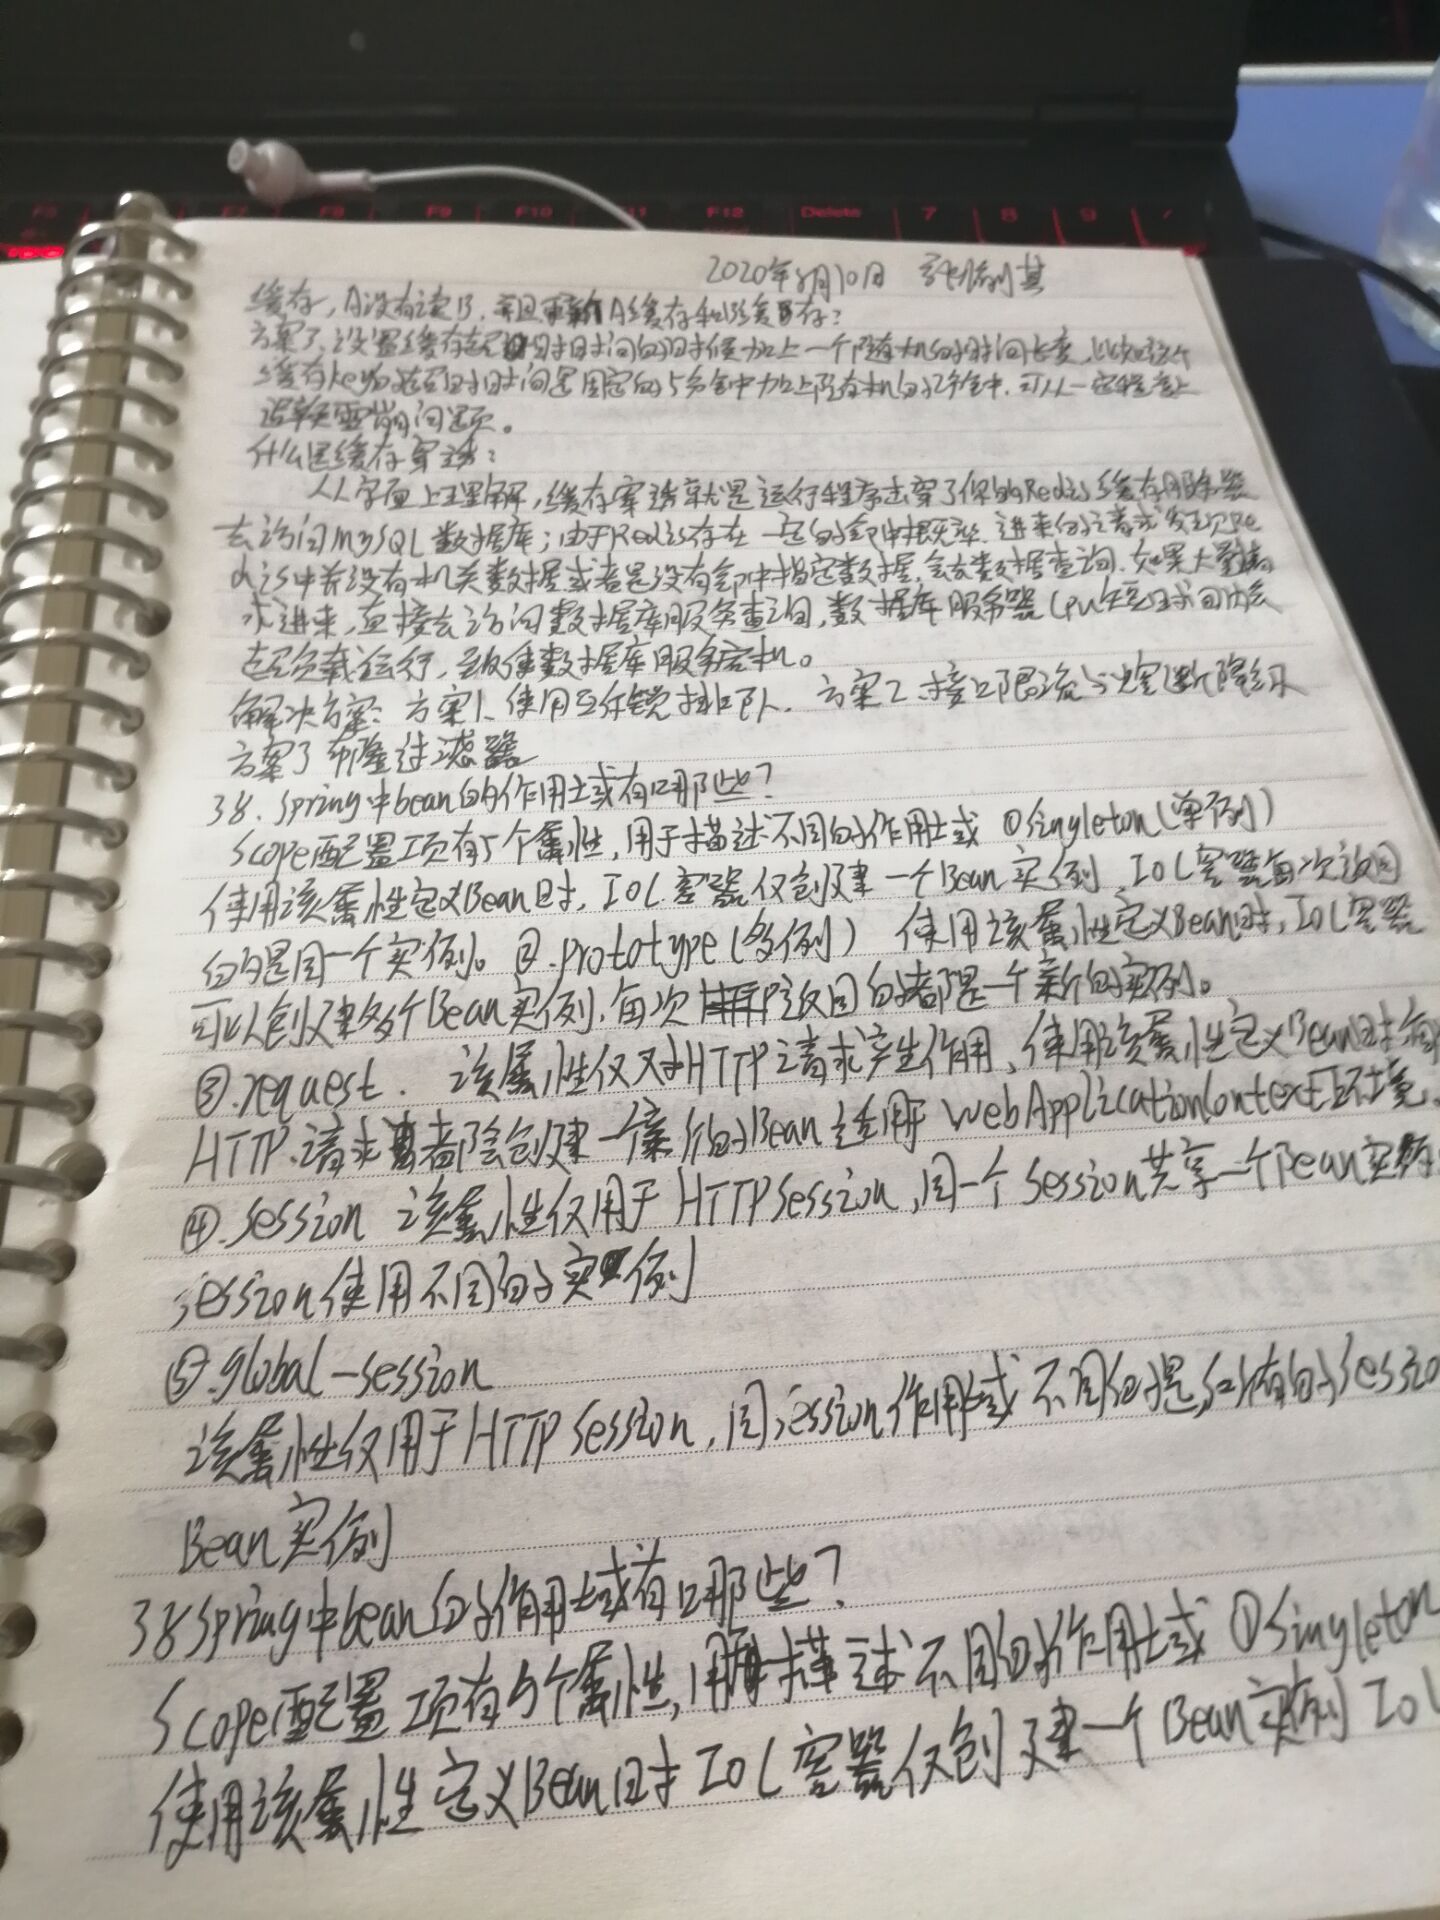 F7 F8 F9 F10 F11 F12 Delete 7 8 9
2020年8月10日
缓存,A没有读B,并且更新A缓存和B缓存;
方案3、设置缓存超时时间的时候加上一个随机的时间长度,比如这个
缓存key的超时时间是固定的5分钟加上随机的2分钟,可从一定程度上
避免雪崩问题。
什么是缓存穿透:
从字面上理解,缓存穿透就是运行程序击穿了你的Redis缓存服务器
去访问MySQL数据库;由于Redis存在一定的命中概率,进来的请求发现Re
dis中并没有相关数据或者是没有命中指定数据,会去数据查询.如果大量请
求进来,直接去访问数据库服务查询,数据库服务器CPU在短时间内会
超负载运行,致使数据库服务宕机。
解决方案:方案1、使用互斥锁排队.方案2、接口限流与熔断降级
方案3 布隆过滤器
38.spring中bean的作用域有哪些?
Scope配置项有5个属性,用于描述不同的作用域 ①singleton(单例)
使用该属性定义Bean时,IOC容器仅创建一个Bean实例,IOC容器每次返回
的是同一个实例。②.prototype(多例) 使用该属性定义Bean时,IOC容器
可以创建多个Bean实例.每次返回的都是一个新的实例。
③.request. 该属性仅对HTTP请求产生作用、使用该属性定义Bean时每
HTTP请求都会创建一个新的Bean适用于WebApplicationContext环境.
④.session 该属性仅用于HTTPSession,同一个Session共享一个Bean实例
session使用不同的实例
⑤.global-session
该属性仅用于HTTPSession,同session作用域不同的是,所有的Sessio
Bean实例
38Spring中bean的作用域有哪些?
Scope配置项有5个属性,用于描述不同的作用域 ①Singleton
使用该属性定义Bean时IOC容器仅创建一个Bean实例 IOC